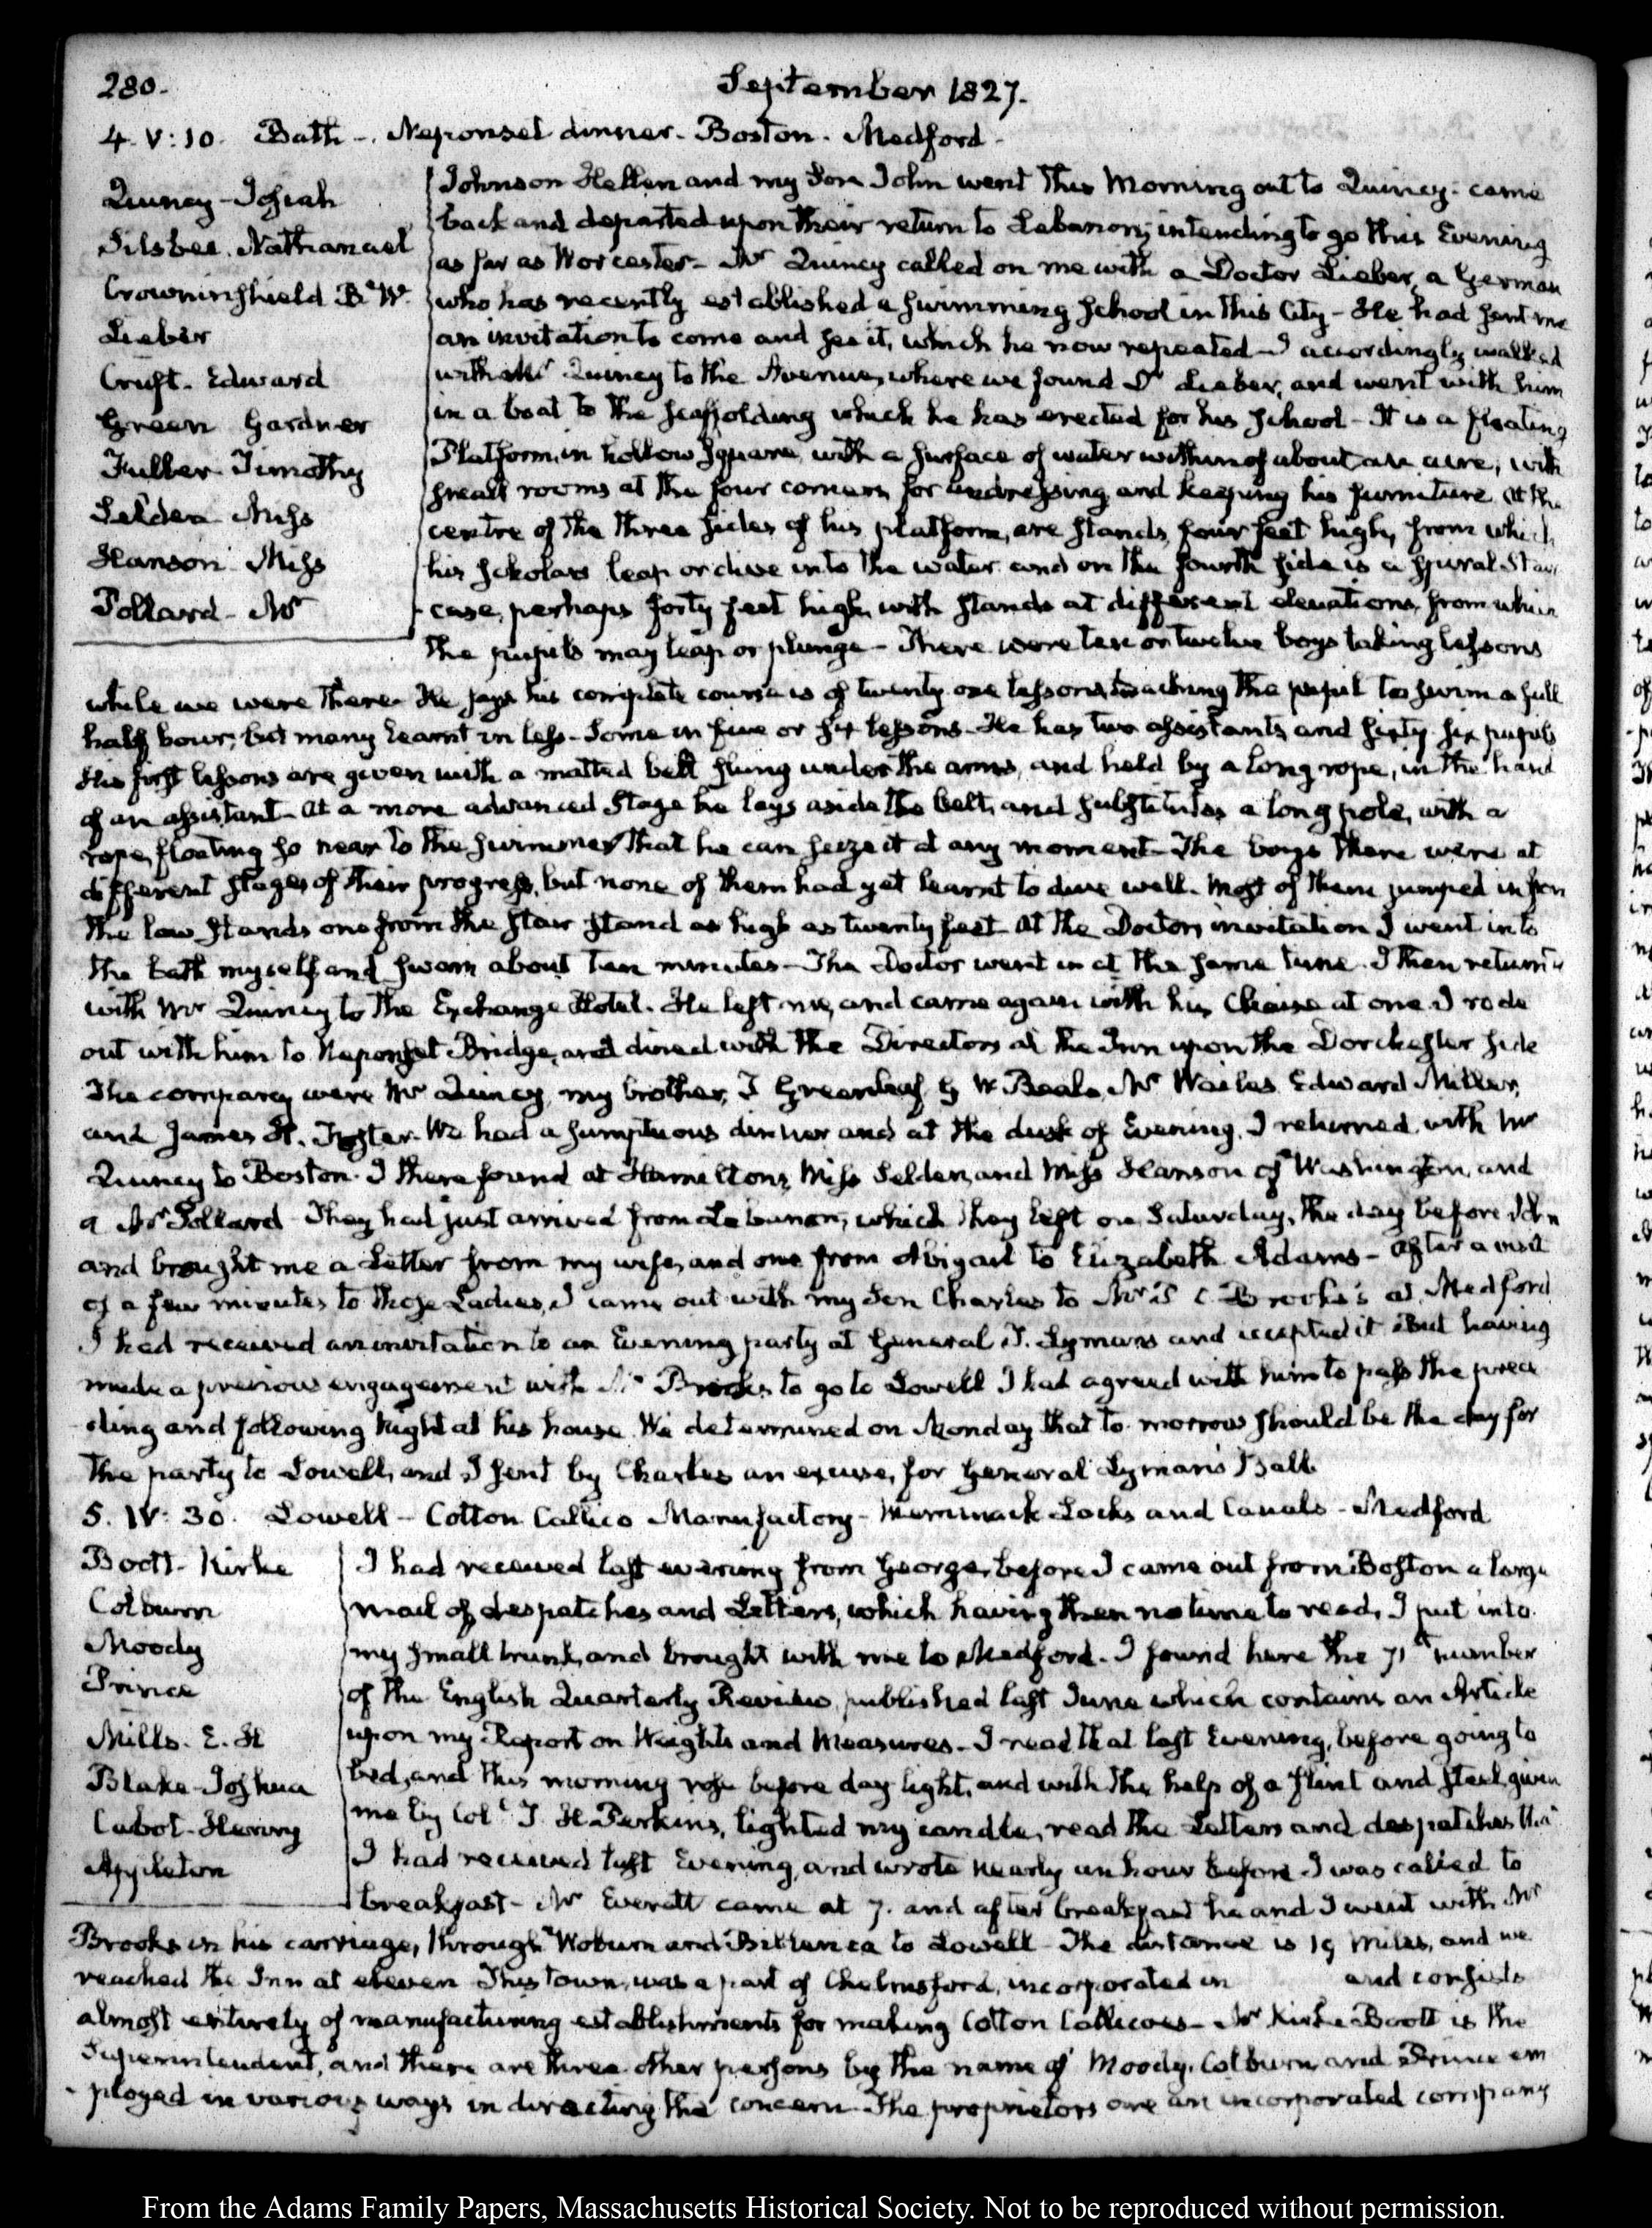 280.
September 1827.
4. V:10. Bath - Neponset dinner - Boston. Medford -
Quincy - Josiah
Silsbee. Nathanael
Crowninshield B. W.
Lieber
Cruft. Edward
Green Gardner
Fuller Timothy
Selden Miss
Hanson Miss
Pollard - Mr
Johnson Hellen and my Son John went this Morning out to Quincy. came
back and departed upon their return to Lebanon; intending to go this Evening
as far as Worcester - Mr Quincy called on me with a Doctor Lieber, a German
who has recently established a swimming school in this City - He had sent me
an invitation to come and see it, which he now repeated - I accordingly walked
with Mr Quincy to the Avenue, where we found Dr Lieber, and went with him
in a boat to the scaffolding which he has erected for his school - It is a floating
Platform, in hollow square, with a surface of water within of about an acre, with
small rooms at the four corners for undressing and keeping his furniture at the
centre of the three sides of his platform, are stands, four feet high, from which
his scholars leap or dive into the water and on the fourth side is a spiral Stair
case, perhaps forty feet high, with stands at different elevations, from which
the pupils may leap or plunge - There were ten or twelve boys taking lessons
while we were there. He says his complete course is of twenty one lessons, teaching the pupil to swim a full
half hour; but many learnt in less. Some in five or six lessons. He has two assistants, and sixty six pupils
His first lessons are given with a matted belt slung under the arms, and held by a long rope, in the hand
of an assistant - At a more advanced stage he lays aside the belt, and substitutes a long pole, with a
rope, floating so near to the swimmer that he can seize it at any moment - The boys there were at
different stages of their progress, but none of them had yet learnt to dive well. Most of them jumped in from
the low stands one from the stair stand as high as twenty feet At the Doctors invitation I went into
the bath myself and swam about ten minutes - The Doctor went in at the same time. I then return'd
with Mr Quincy to the Exchange Hotel. He left me, and came again with his Chaise at one. I rode
out with him to Neponset Bridge, and dined with the Directors at the Inn upon the Dorchester side
The company were Mr Quincy, my brother, T Greenleaf, G W Beale, Mr Wailes Edward Miller,
and James H. Foster. We had a sumptuous dinner and at the dusk of Evening, I returned with Mr
Quincy to Boston. I there found at Hamiltons, Miss Selden, and Miss Hanson of Washington, and
a Mr Pollard - They had just arrived from Lebanon, which they left on Saturday, the day before John
and brought me a Letter from my wife, and one from Abigail to Elizabeth Adams - After a visit
of a few minutes to these Ladies, I came out with my Son Charles to Mr P. C. Brooks's at Medford
I had received an invitation to an Evening party at General T. Lyman's and accepted it But having
made a previous engagement with Mr Brooks, to go to Lowell I had agreed with him to pass the prece
-ding and following Night at his house We determined on Monday that to-morrow should be the day for
the party to Lowell, and I sent by Charles an excuse, for General Lyman's Ball.
5. IV: 30. Lowell - Cotton Callico Manufactory - Merrimack Locks and Canals - Medford
Boott - Kirke
Colburn
Moody
Prince
Mills. E. H
Blake - Joshua
Cabot - Henry
Appleton
I had received last evening from George, before I came out from Boston a large
mail of despatches and Letters, which having then no time to read, I put into
my small trunk, and brought with me to Medford. I found here the 71st number
of the English Quarterly Review, published last June which contains an Article
upon my Report on Weights and Measures - I read that last Evening, before going to
bed, and this morning rose before day light, and with the help of a flint and steel, given
me by Coll T. H. Perkins, lighted my candle, read the Letters and despatches that
I had received last Evening, and wrote nearly an hour before I was called to
breakfast - Mr Everett came at 7. and after breakfast he and I went with Mr
Brooks in his carriage, through Woburn and Billerica to Lowell - The distance is 19 Miles, and we
reached the Inn at eleven This town, was a part of Chelmsford, incorporated in and consists
almost entirely of manufacturing establishments for making Cotton Callicoes - Mr Kirke Boott is the
Superintendent, and there are three other persons by the name of Moody, Colburn and Prince em
-ployed in various ways in directing the concern - The proprietors are an incorporated company
From the Adams Family Papers, Massachusetts Historical Society. Not to be reproduced without permission.